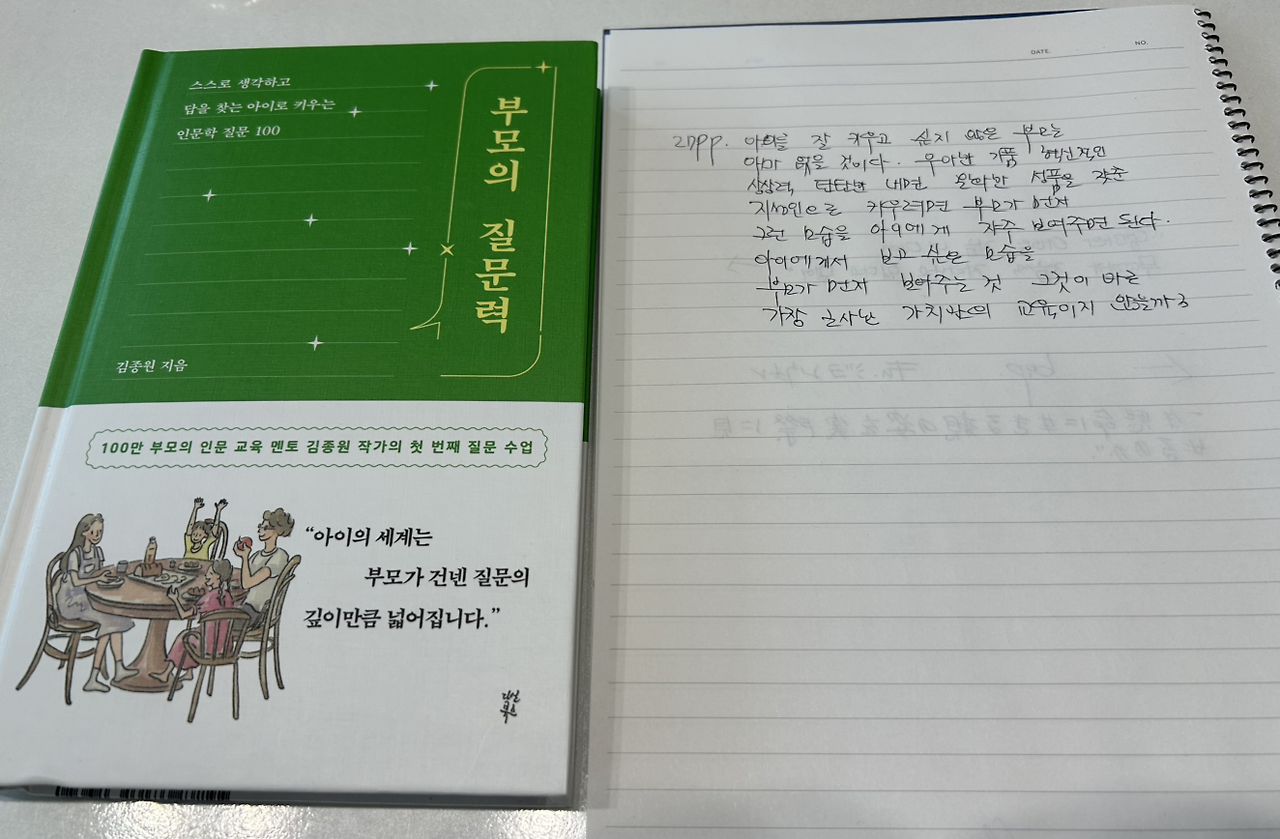 스스로 생각하고
답을 찾는 아이로 키우는
인문학 질문 100
부모의 질문력
김종원 지음
100만 부모의 인문 교육 멘토 김종원 작가의 첫 번째 질문 수업
“아이의 세계는
부모가 건넨 질문의
깊이만큼 넓어집니다.”
다산
북스
DATE.
NO.
27pp. 아이를 잘 키우고 싶지 않은 부모는
아마 없을 것이다. 우아한 기품 혁신적인
상상력, 탄탄한 내면 온화한 성품을 갖춘
지성인으로 키우려면 부모가 먼저
그런 모습을 아이에게 자주 보여주면 된다.
아이에게서 보고 싶은 모습을
부모가 먼저 보여주는 것 그것이 바로
가장 근사한 가치있는 교육이지 않을까?